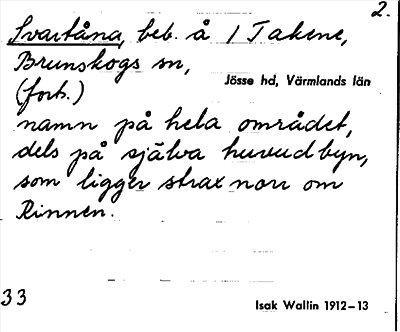 2.
Svartåna, beb. å 1 Takene,
Brunskogs sn,
Jösse hd, Värmlands län
(forts.)
namn på hela området,
dels på själva huvudbyn,
som ligger strax norr om
Rinnen.
33
Isak Wallin 1912-13